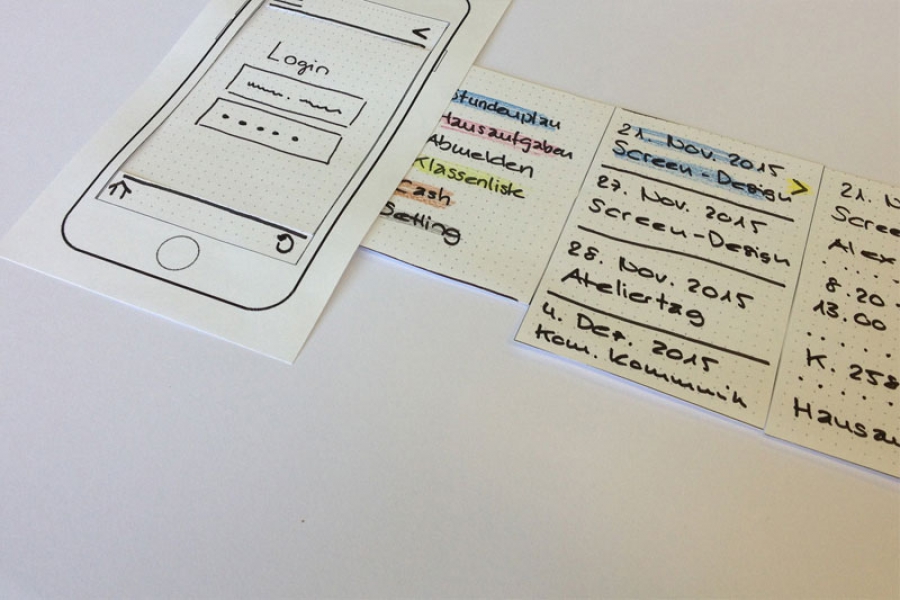 Login
Stundenplan
Hausaufgaben
Abmelden
Klassenliste
Cash
Setting
21. Nov. 2015
Screen-Design >
27. Nov. 2015
Screen-Design
28. Nov. 2015
Ateliertag
4. Dez. 2015
Kom. Kommunik
21.
Scree
Alex
8.20 -
13.00
K. 258
Hausau